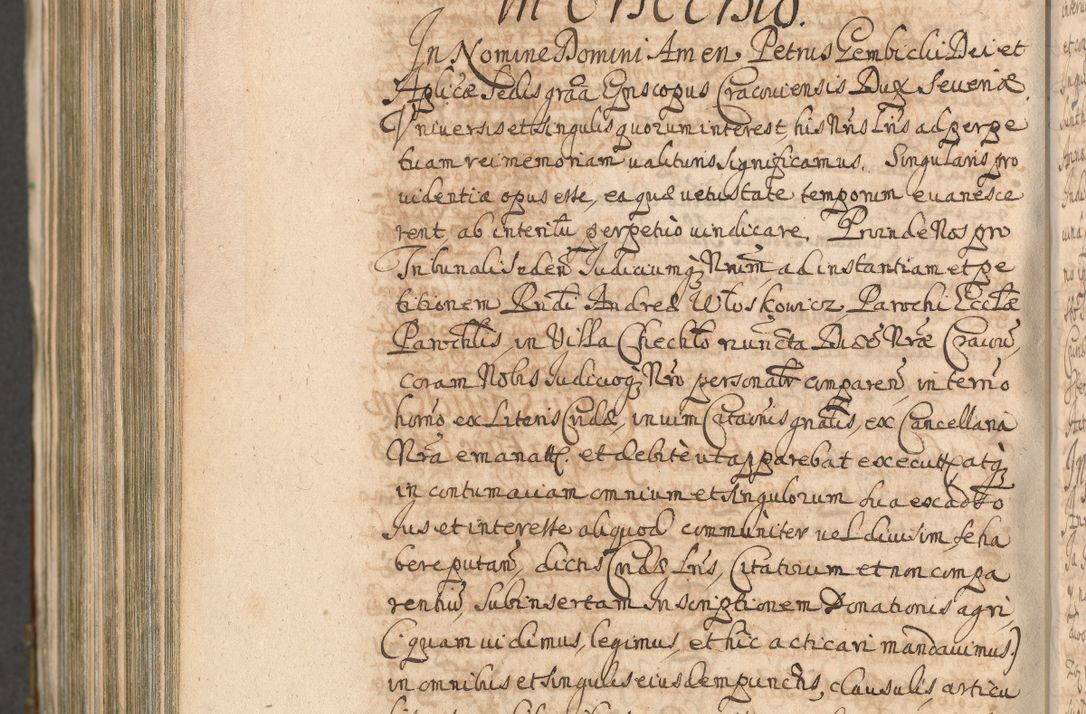 in Chechło.
In Nomine Domini Amen. Petrus Gembicki Dei et
Aplicæ Sedis gra͠a Episcopus Cracouiensis Dux Seueriæ.
Vniuersis et singulis quorum interest, his Nr͠is Lr͠is ad perpe
tuam rei memoriam ualituris significamus. Singularis pro
uidentiæ opus esse, ea quæ uetustate temporum euanesce
rent ab interitu perpetuò uindicare. Proinde Nos pro
Tribunali seden͠ Judiciumq́ Nr͠um ad instantiam et pe
titionem Rndi Andreæ Włoskowicz Parochi Eccl͠æ
Parochl͠is, in Villa Chechło nun͠c͠ta Diæc͠ Nr͠æ Cracou͠,
coram Nobis Judicioq́ Nr͠o personalr͠ comparen͠, in term͠o
hor͠no ex Literis Cridæ, in uim Citaõnis gnal͠is, ex Cancellaria
Nr͠a emanatt. et debitè ut apparebat executt, atq́
in contumaciam omnium et singulorum sua ex ad͠tto
Jus et interesse aliquod communiter uel diuisim se ha
bere putan͠, dictis Cridæ Lr͠is, Citatorum et non compa
rentiu͠, subinsertam Inscriptionem Donationis agri,
(quam uidimus, legimus, et hic acticari mandauimus.)
in omnibus et singulis eiusdem punctis, clausulis, articu